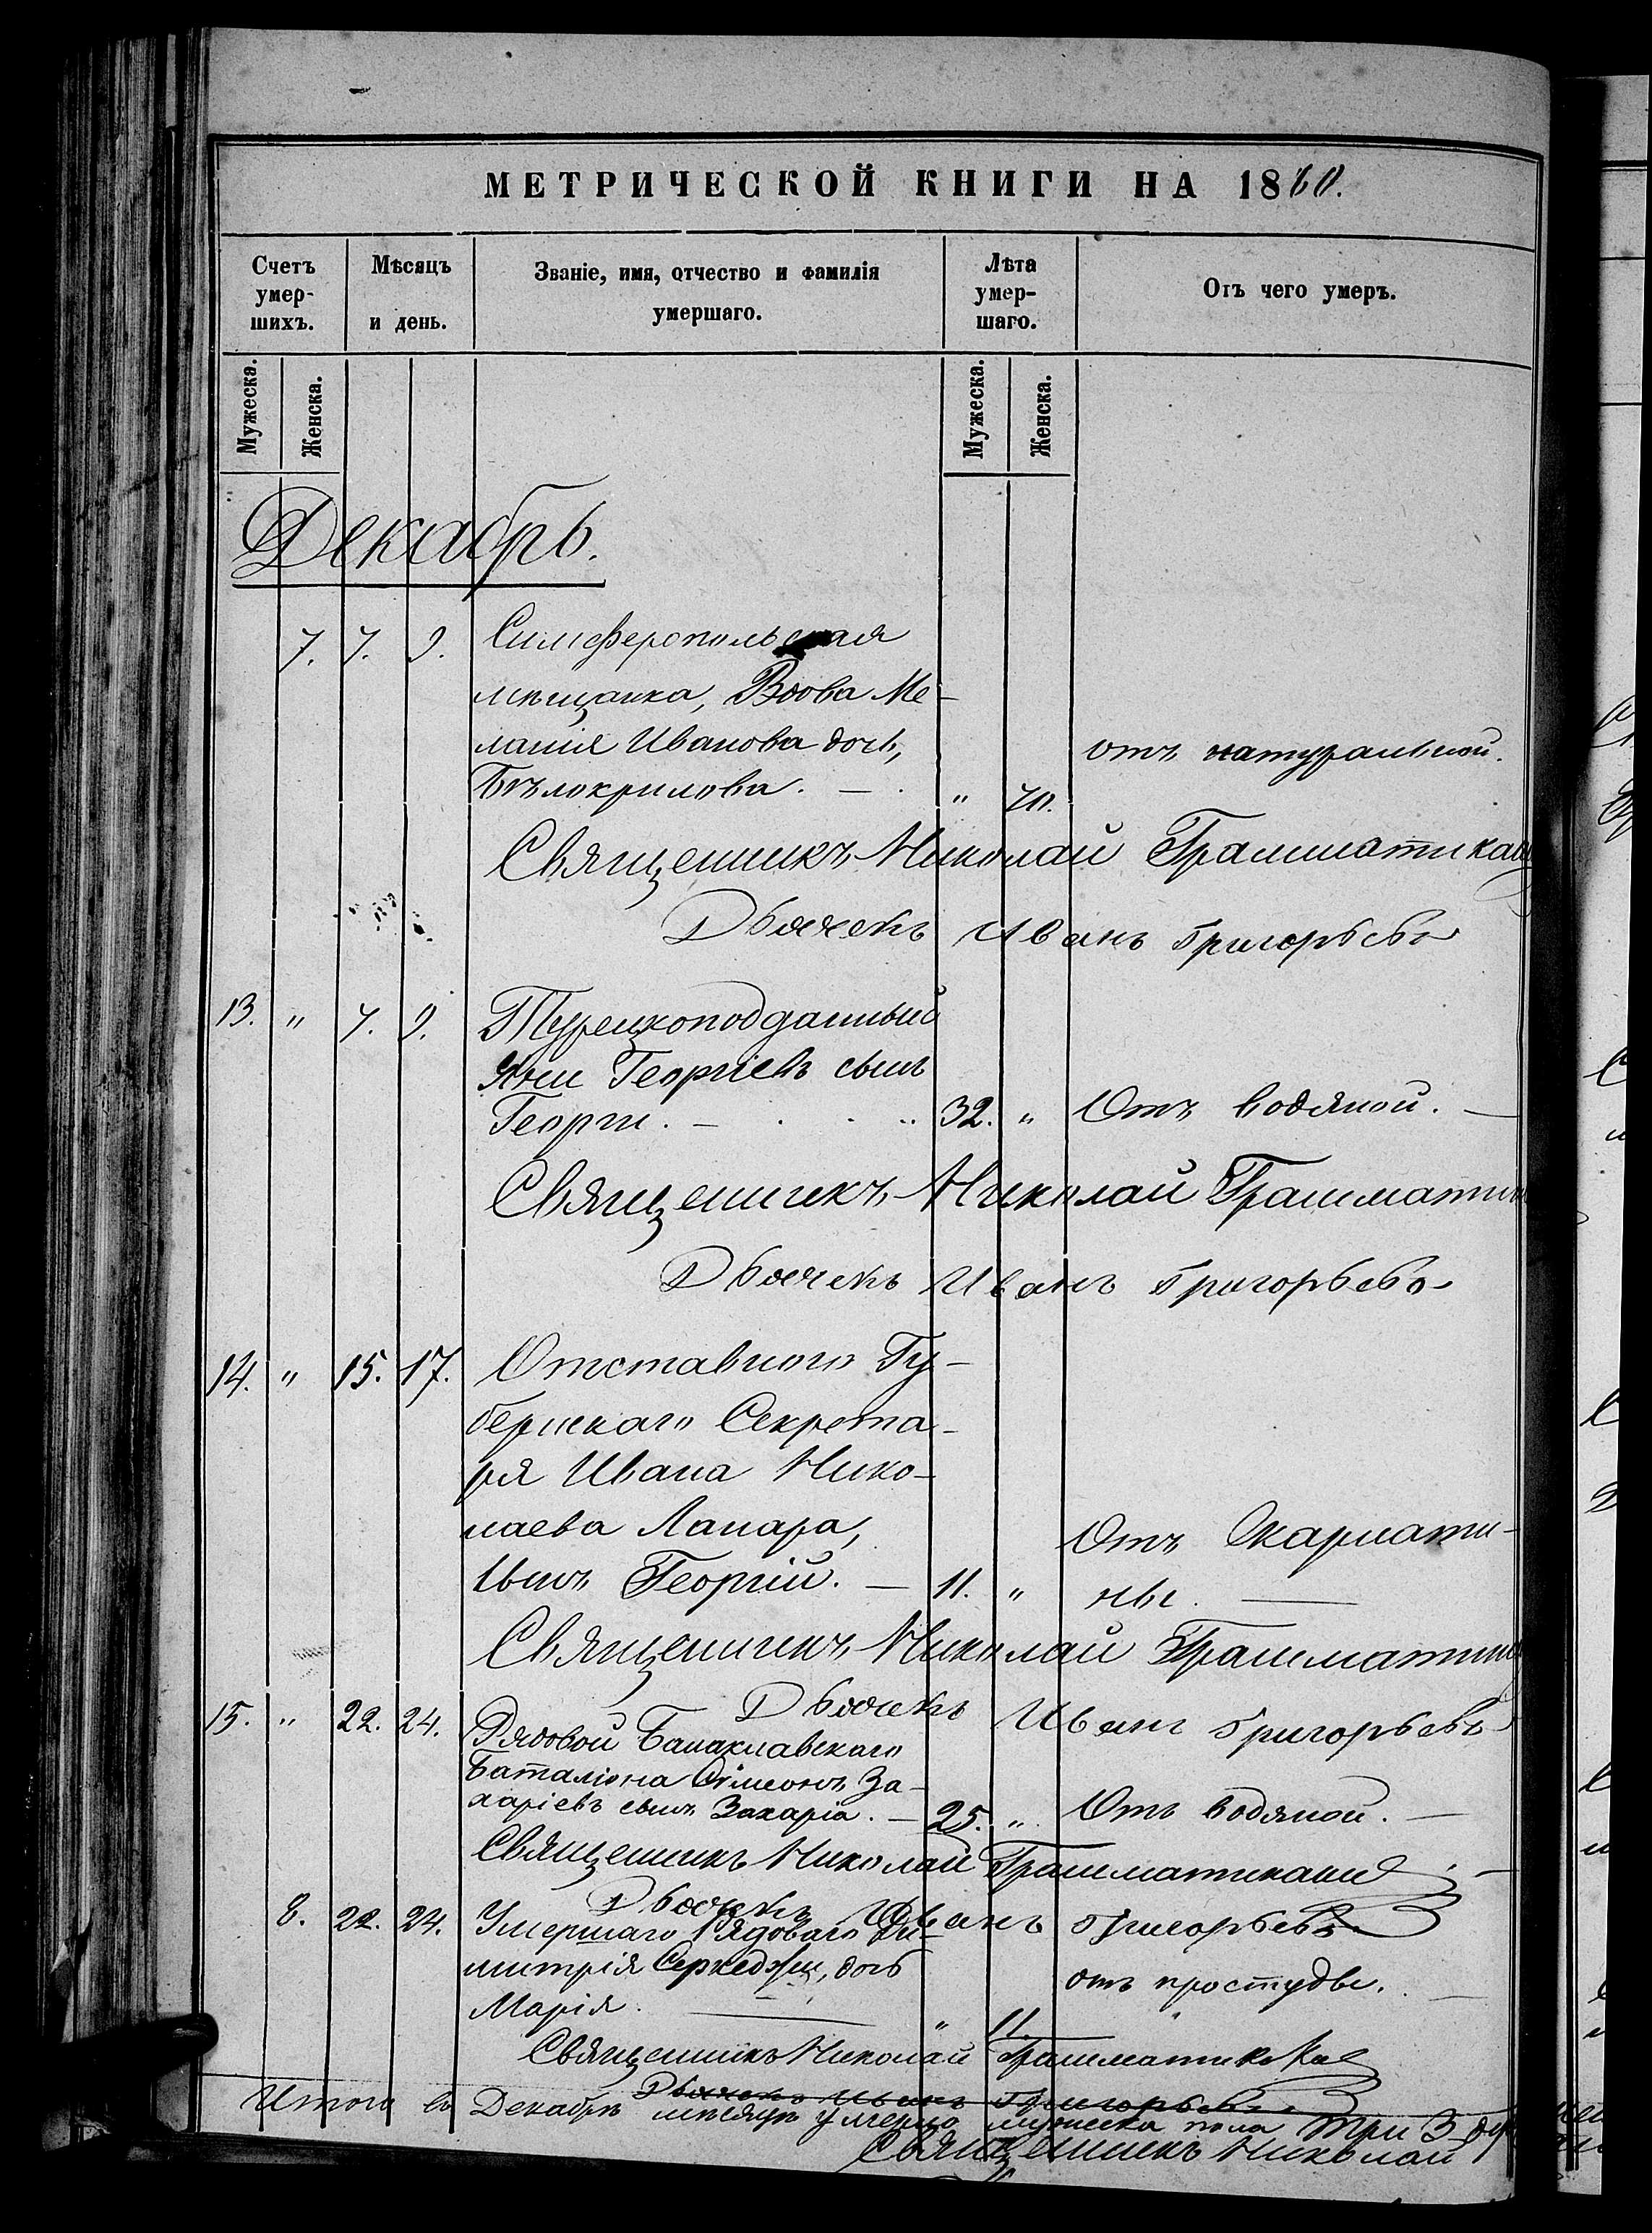 МЕТРИЧЕСКОЙ КНИГИ НА 1860.
Счетъ умер-шихъ.
Мѣсяцъ и день.
Званіе, имя, отчество и фамилія умершаго.
Лѣта умер-шаго.
Отъ чего умеръ.
Мужеска. Женска. Мужеска. Женска.
Декабрь.
7. 7. 9. Симферопольская
мѣщанка, Вдова Ме-
ланія Иванова дочь, отъ натуральной.
Бѣлокрилова. — " 70.
Священникъ Николай Грамматикаки
Дьячекъ Иванъ Григорьевъ
13. " 7. 9. Турецкоподданный
Яни Георгіевъ сынъ
Георги. — 32. " Отъ водяной. —
Священникъ Николай Грамматик
Дьячекъ Иванъ Григорьевъ
14. " 15. 17. Отставного Гу-
бернскаго Секрета-
ря Ивана Нико-
лаева Лапара, Отъ Скарлати-
сынъ Георгій. — 11. " ны. —
Священникъ Николай Грамматик
Дьячекъ Иванъ Григорьевъ
15. " 22. 24. Рядовой Балаклавскаго
Баталіона Симеонъ За-
харіевъ сынъ Захаріа. — 25. " Отъ водяной. —
Священникъ Николай Грамматикаки
Дьячекъ Иванъ Григорьевъ
8. 22. 24. Умершаго Рядоваго Ди-
митрія Серкеджи, дочь отъ простуды. —
Марія. — " 11.
Священникъ Николай Грамматикаки
Дьячекъ Иванъ Григорьевъ
Итого въ Декабрѣ мѣсяцѣ умерло мужеска пола три 3
Священникъ Николай